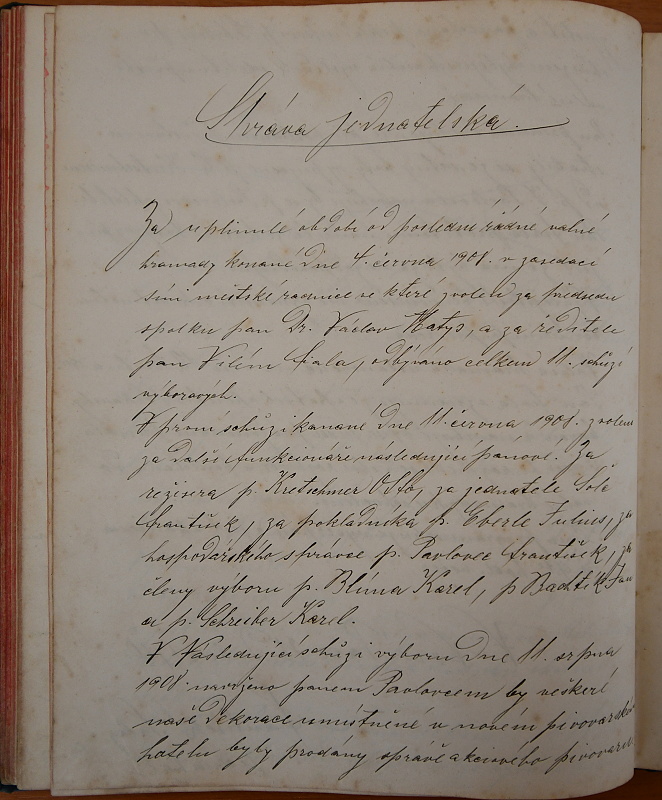 Zpráva jednatelská.
Za uplinulé období od poslední řádné valné
hromady konané dne 4. června 1908. v zasedací
síni městské radnice ve které zvolen za předsedu
spolku pan Dr. Václav Matys, a za ředitele
pan Vilém Fiala, odbýváno celkem 11. schůzí
výborových.
V první schůzi konané dne 11. června 1908. zvoleni
za další funkcionáře následující pánové. Za
režisera p. Kretschmer Otto, za jednatele
František, za pokladníka p. Eberle Julius, za
hospodářského správce p. Pavlovec František, za
členy výboru p. Blúma Karel, p Bachtík Jan
a p. Schreiber Karel.
V Následující schůzi výboru dne 11. srpna
1908. navrženo panem Pavlovcem by veškeré
naše dekorace umístněné v novém pivovarském
hotelu byly prodány správě akciového pivovaru